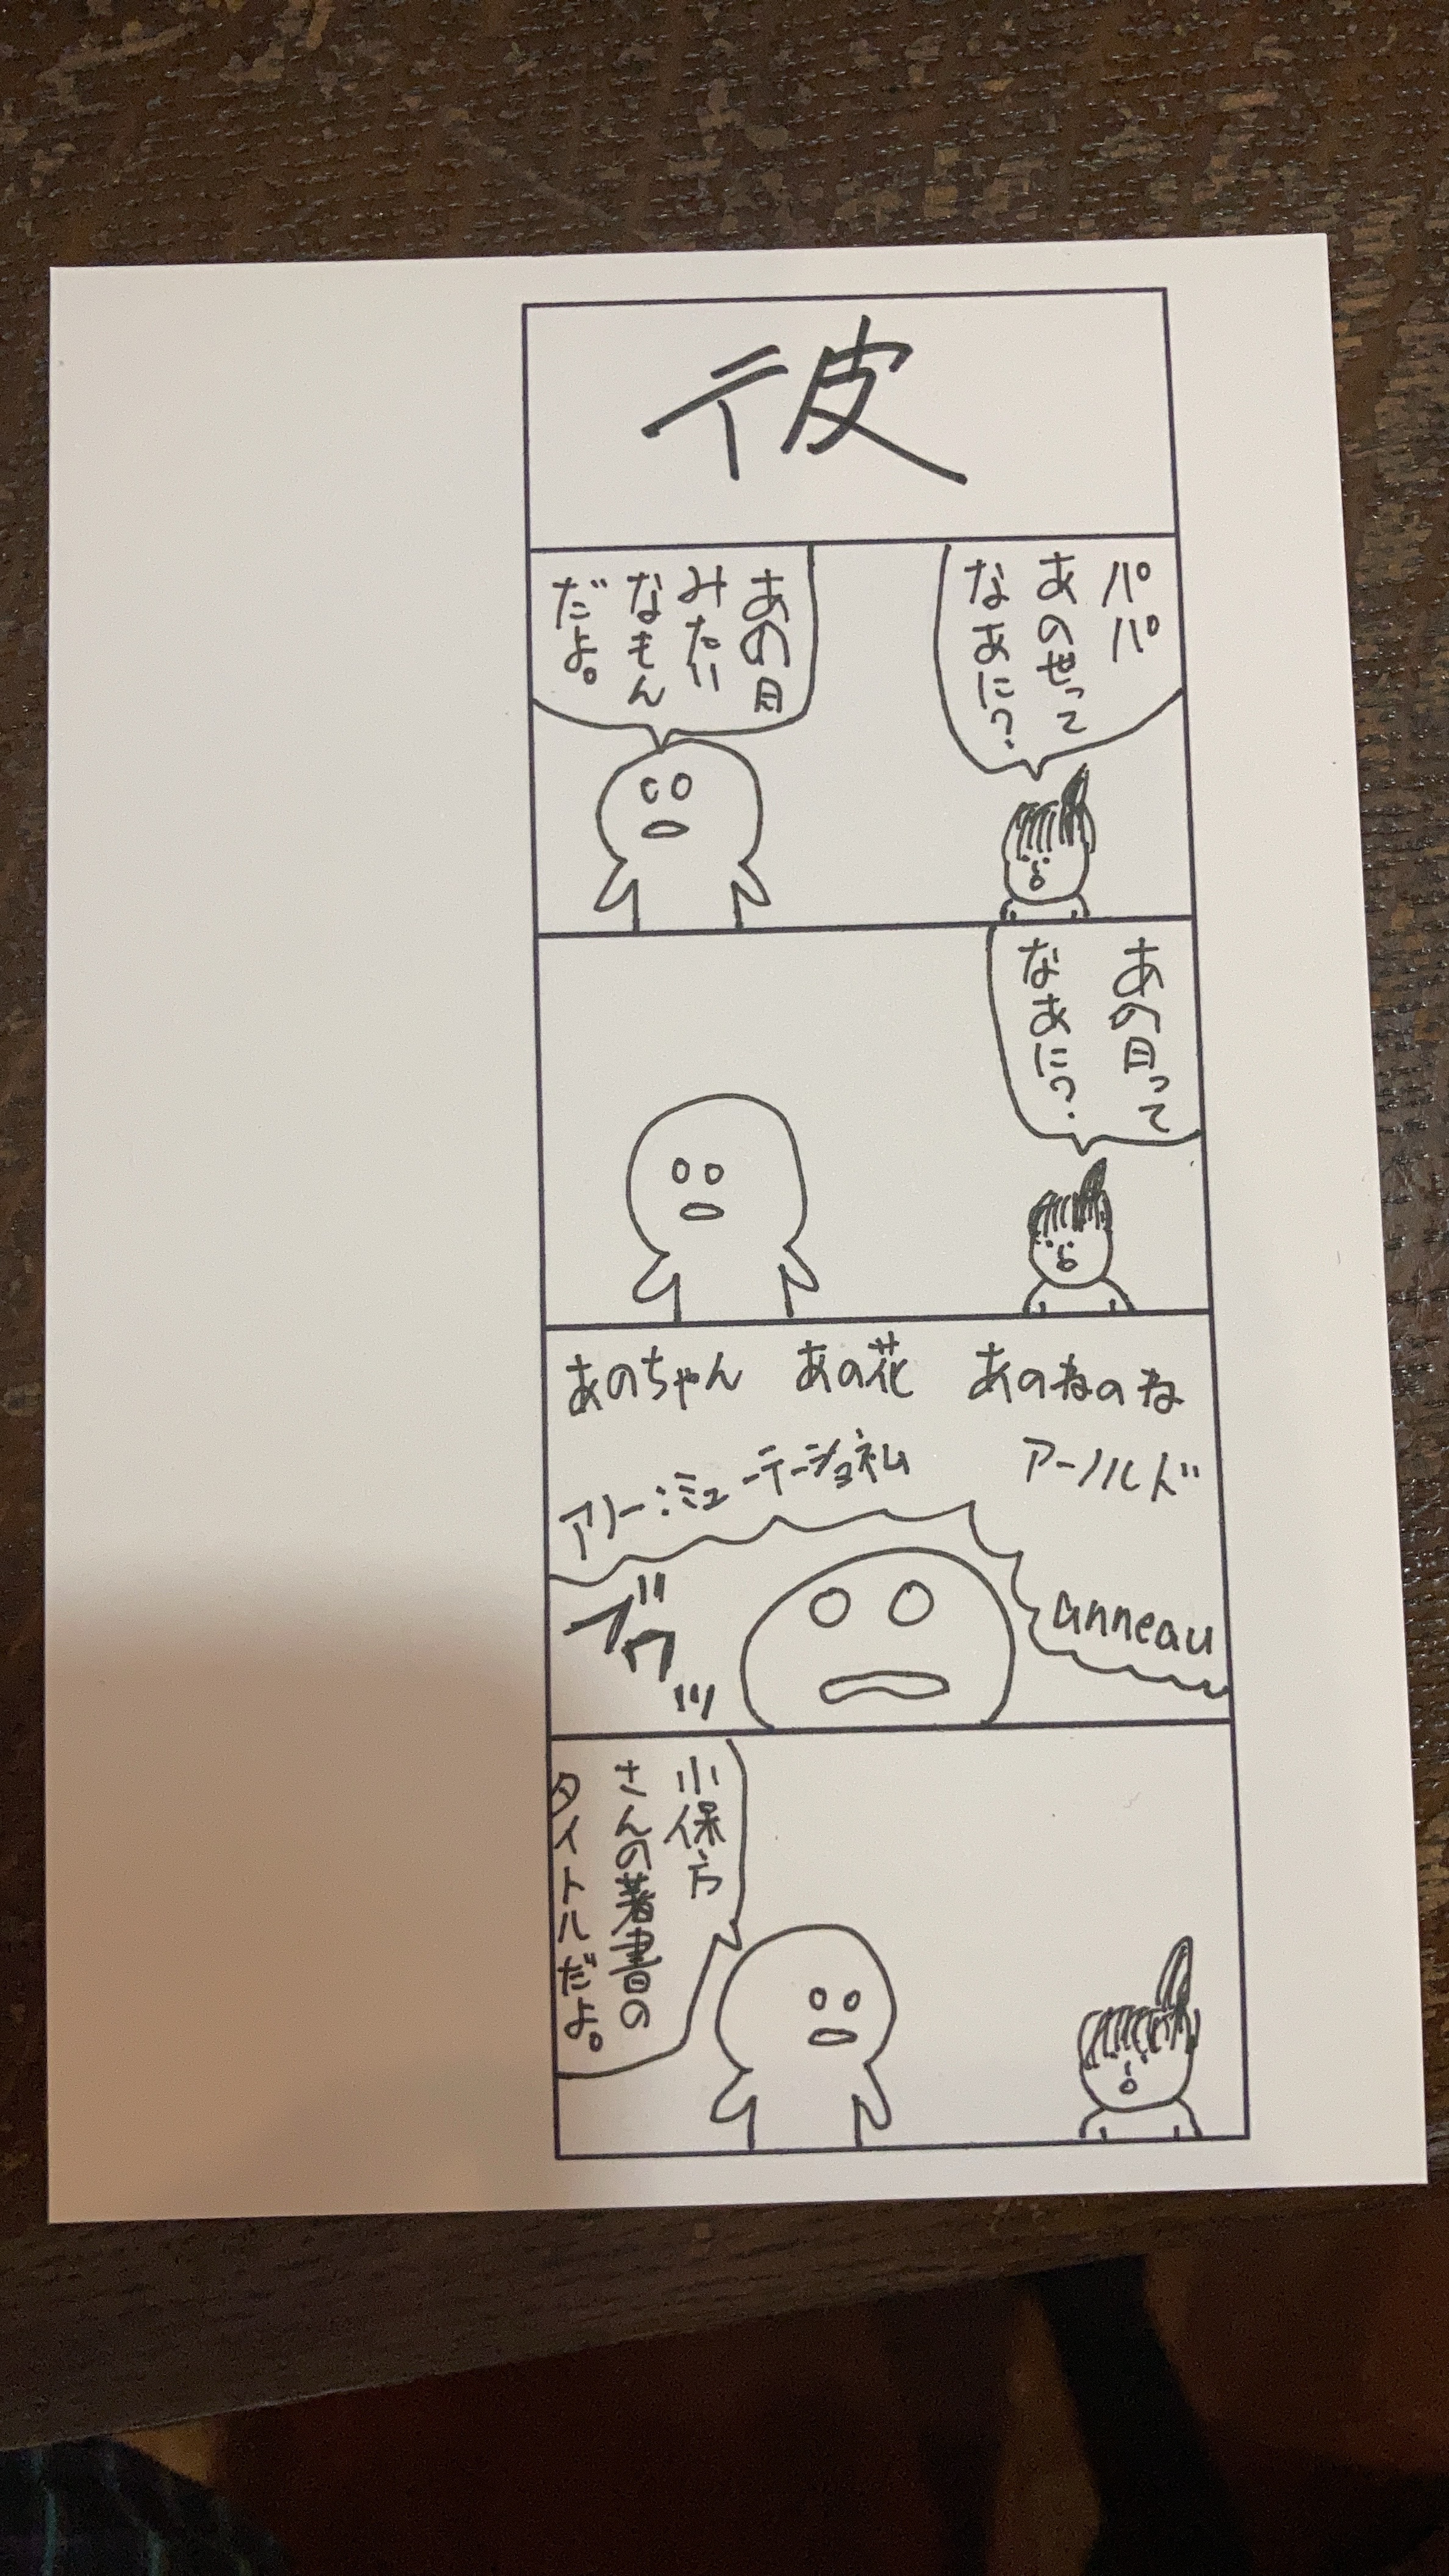 彼
パパ
あの世って
なあに?
あの日
みたい
なもん
だよ。
あの日って
なあに?
あのちゃん あの花 あのねのね
アーノルド
anneau
ブワッ
小保方
さんの著書の
タイトルだよ。